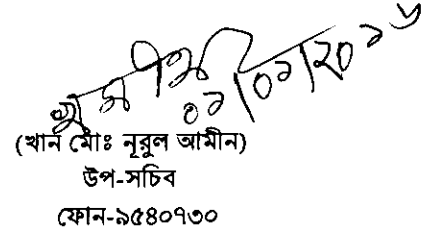 ০১/০১/২০১৬
(খান মোঃ নূরুল আমীন)
উপ-সচিব
ফোন-৯৫৪০৭৩০